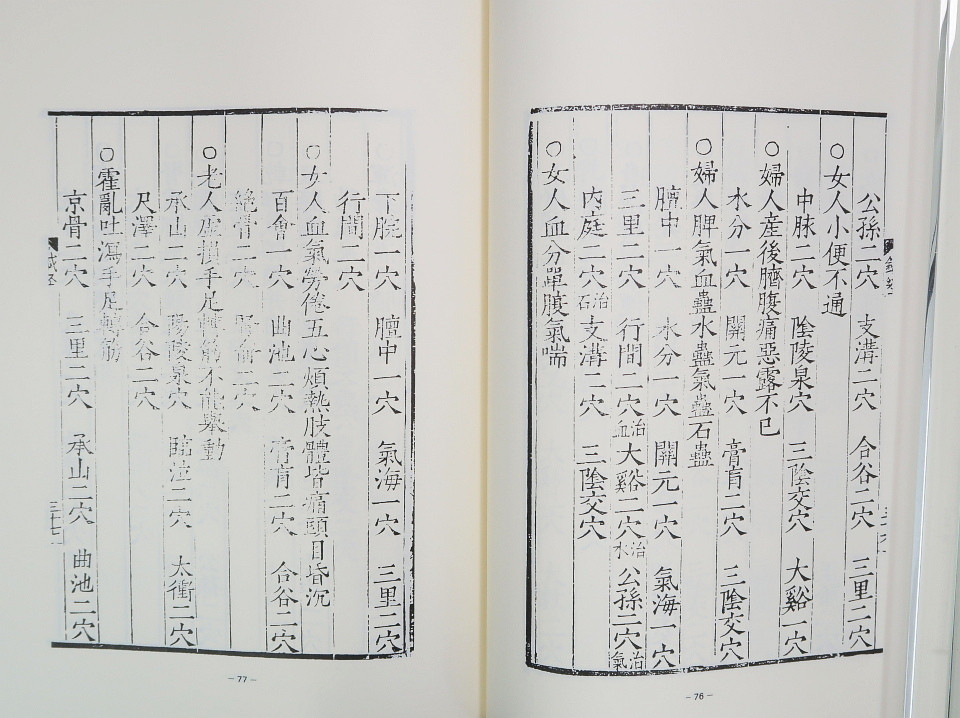 公孫二穴 支溝二穴 合谷二穴 三里二穴
○女人小便不通
中脉二穴 陰陵泉穴 三陰交穴 大谿一穴
○婦人産後臍腹痛惡露不已
水分一穴 關元一穴 膏肓二穴 三陰交穴
○婦人脾氣血蠱水蠱氣蠱石蠱
膻中一穴 水分一穴 關元一穴 氣海一穴
三里二穴 行間二穴治血 大谿二穴治水 公孫二穴治氣
內庭二穴治石 支溝二穴 三陰交穴
○女人血分單腹氣喘
-76-
下脘一穴 膻中一穴 氣海一穴 三里二穴
行間二穴
○女人血氣勞倦五心煩熱肢體皆痛頭目昏沉
百會一穴 曲池二穴 膏肓二穴 合谷二穴
絶骨二穴 腎俞二穴
○老人虛損手足轉筋不能舉動
承山二穴 陽陵泉穴 臨泣二穴 太衝二穴
尺澤二穴 合谷二穴
○霍亂吐瀉手足轉筋
京骨二穴 三里二穴 承山二穴 曲池二穴
-77-